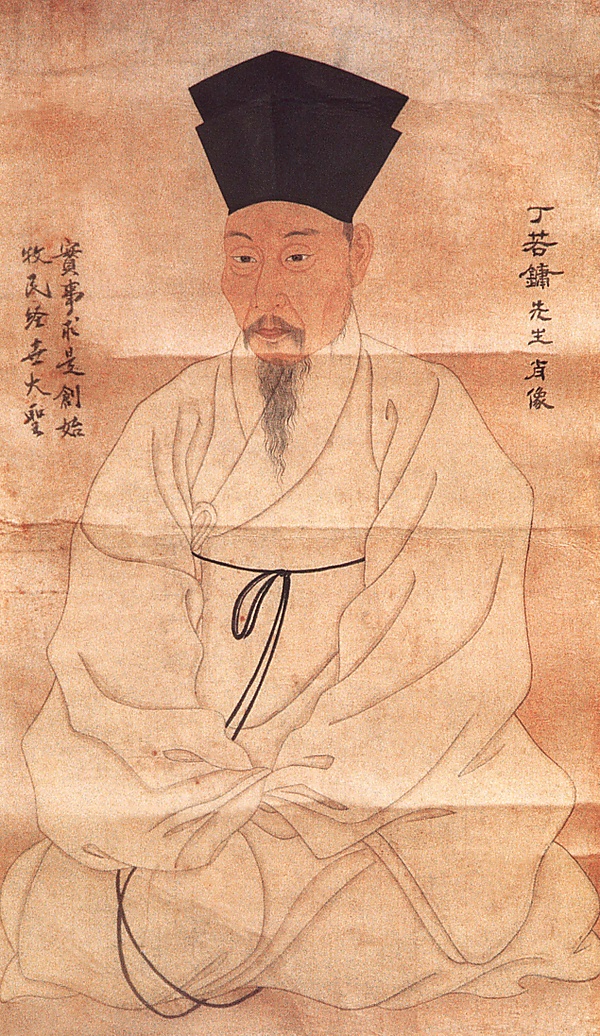 丁若鏞先生肖像
實事求是創始
牧民経世大聖